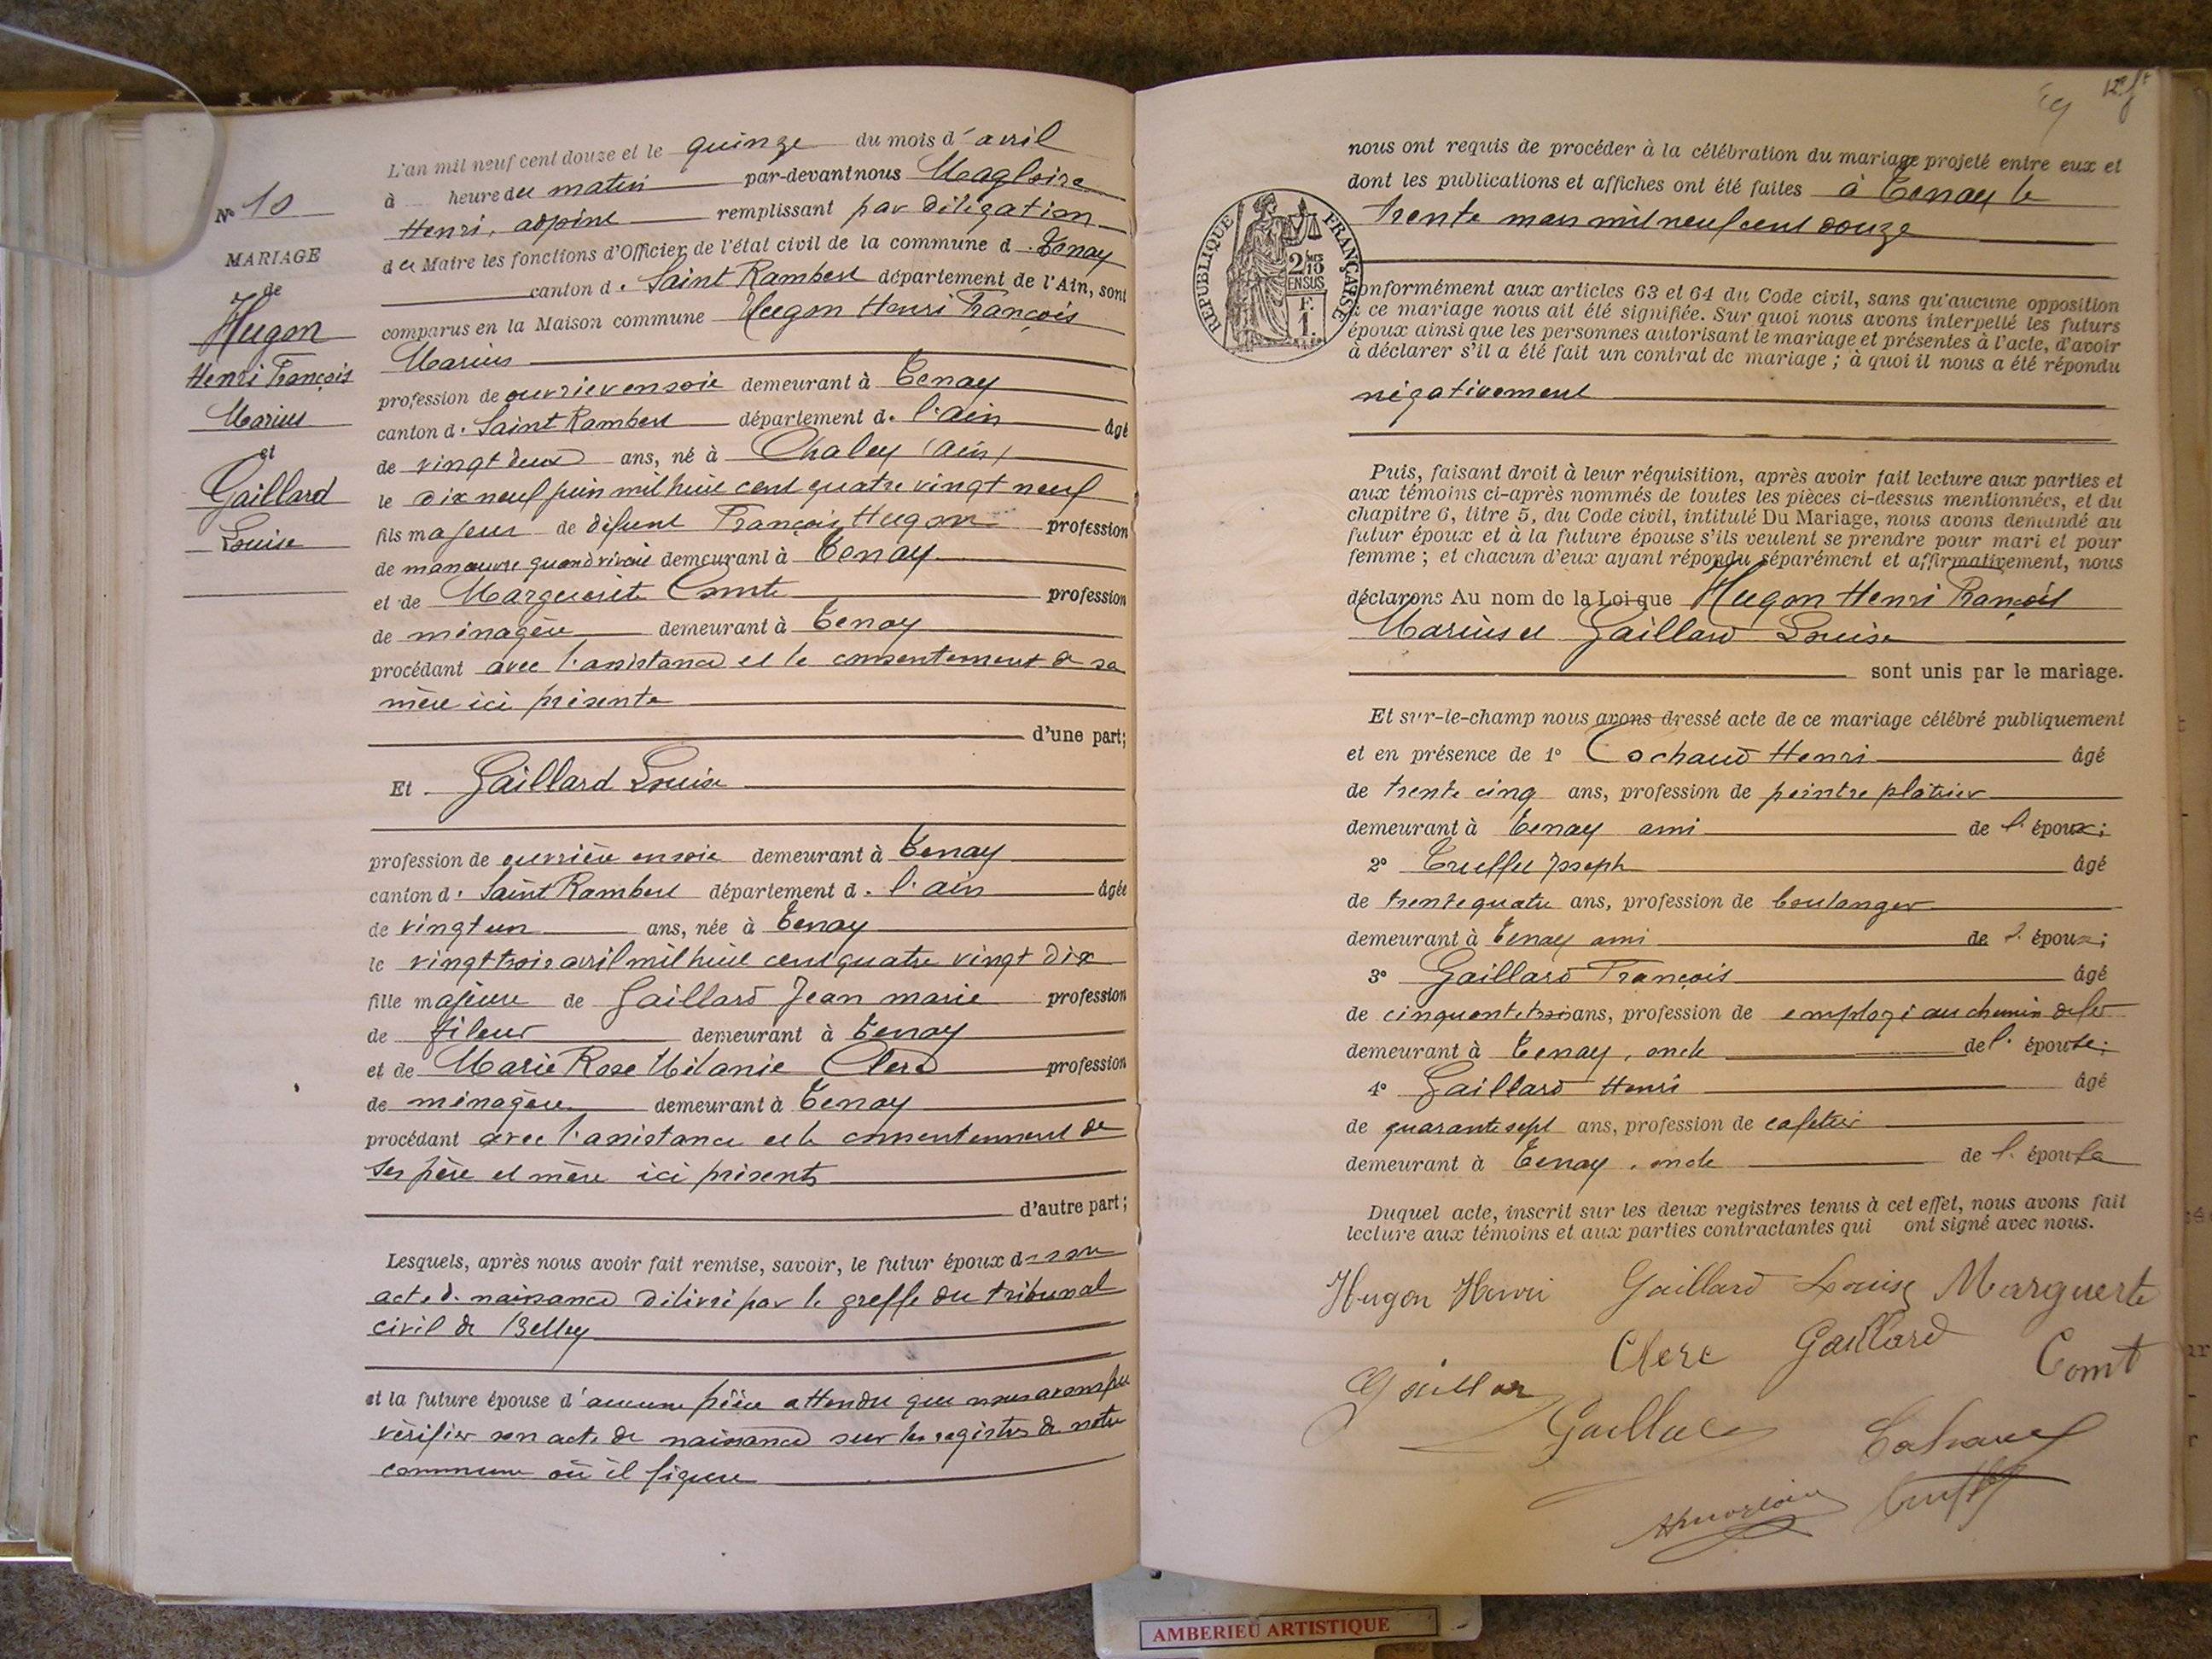 L'an mil neuf cent douze et le quinze du mois d'avril
à heure du matin par-devant nous Magloire
Henri, adjoint remplissant par délégation
du Maire les fonctions d'Officier de l'état civil de la commune d. Tenay
canton d. Saint Rambert département de l'Ain, sont
comparus en la Maison commune Hugon Henri François
Marius
profession de ouvrier en soie demeurant à Tenay
canton d. Saint Rambert département d. l'ain âgé
de vingt deux ans, né à Chaley (ain)
le dix neuf juin mil huit cent quatre vingt neuf
fils majeur de défunt François Hugon profession
de manœuvre quand vivait demeurant à Tenay
et de Marguerite Comte profession
de ménagère demeurant à Tenay
procédant avec l'assistance et le consentement de sa
mère ici présente
d'une part;
Et Gaillard Louise
profession de ouvrière en soie demeurant à Tenay
canton d. Saint Rambert département d. l'ain âgée
de vingt un ans, née à Tenay
le vingt trois avril mil huit cent quatre vingt dix
fille majeure de Gaillard Jean marie profession
de fileur demeurant à Tenay
et de Marie Rose Mélanie Clerc profession
de ménagère demeurant à Tenay
procédant avec l'assistance et le consentement de
ses père et mère ici présents
d'autre part;
Lesquels, après nous avoir fait remise, savoir, le futur époux de son
acte d. naissance délivré par le greffe du tribunal
civil de Belley
et la future épouse d'aucune pièce attendu que nous avons pu
vérifier son acte de naissance sur les registres de notre
commune où il figure
N° 10
MARIAGE
de
Hugon
Henri François
Marius
et
Gaillard
Louise
nous ont requis de procéder à la célébration du mariage projeté entre eux et
dont les publications et affiches ont été faites à Tenay le
trente mars mil neuf cent douze
RÉPUBLIQUE FRANÇAISE
2/10
EN SUS
F.
1.
conformément aux articles 63 et 64 du Code civil, sans qu'aucune opposition
à ce mariage nous ait été signifiée. Sur quoi nous avons interpellé les futurs
époux ainsi que les personnes autorisant le mariage et présentes à l'acte, d'avoir
à déclarer s'il a été fait un contrat de mariage ; à quoi il nous a été répondu
négativement
Puis, faisant droit à leur réquisition, après avoir fait lecture aux parties et
aux témoins ci-après nommés de toutes les pièces ci-dessus mentionnées, et du
chapitre 6, titre 5, du Code civil, intitulé Du Mariage, nous avons demandé au
futur époux et à la future épouse s'ils veulent se prendre pour mari et pour
femme ; et chacun d'eux ayant répondu séparément et affirmativement, nous
déclarons Au nom de la Loi que Hugon Henri François
Marius et Gaillard Louise
sont unis par le mariage.
Et sur-le-champ nous avons dressé acte de ce mariage célébré publiquement
et en présence de 1° Cochaud Henri âgé
de trente cinq ans, profession de peintre plâtrier
demeurant à Tenay ami de l. époux;
2° Truffu Joseph âgé
de trente quatre ans, profession de boulanger
demeurant à Tenay ami de l. époux;
3° Gaillard François âgé
de cinquante trois ans, profession de employé au chemin de fer
demeurant à Tenay, oncle de l. épouse;
4° Gaillard Henri âgé
de quarante sept ans, profession de cafetier
demeurant à Tenay, oncle de l. épouse
Duquel acte, inscrit sur les deux registres tenus à cet effet, nous avons fait
lecture aux témoins et aux parties contractantes qui ont signé avec nous.
Hugon Henri Gaillard Louise Marguerte
Clerc Gaillard Comt
AMBERIEU ARTISTIQUE